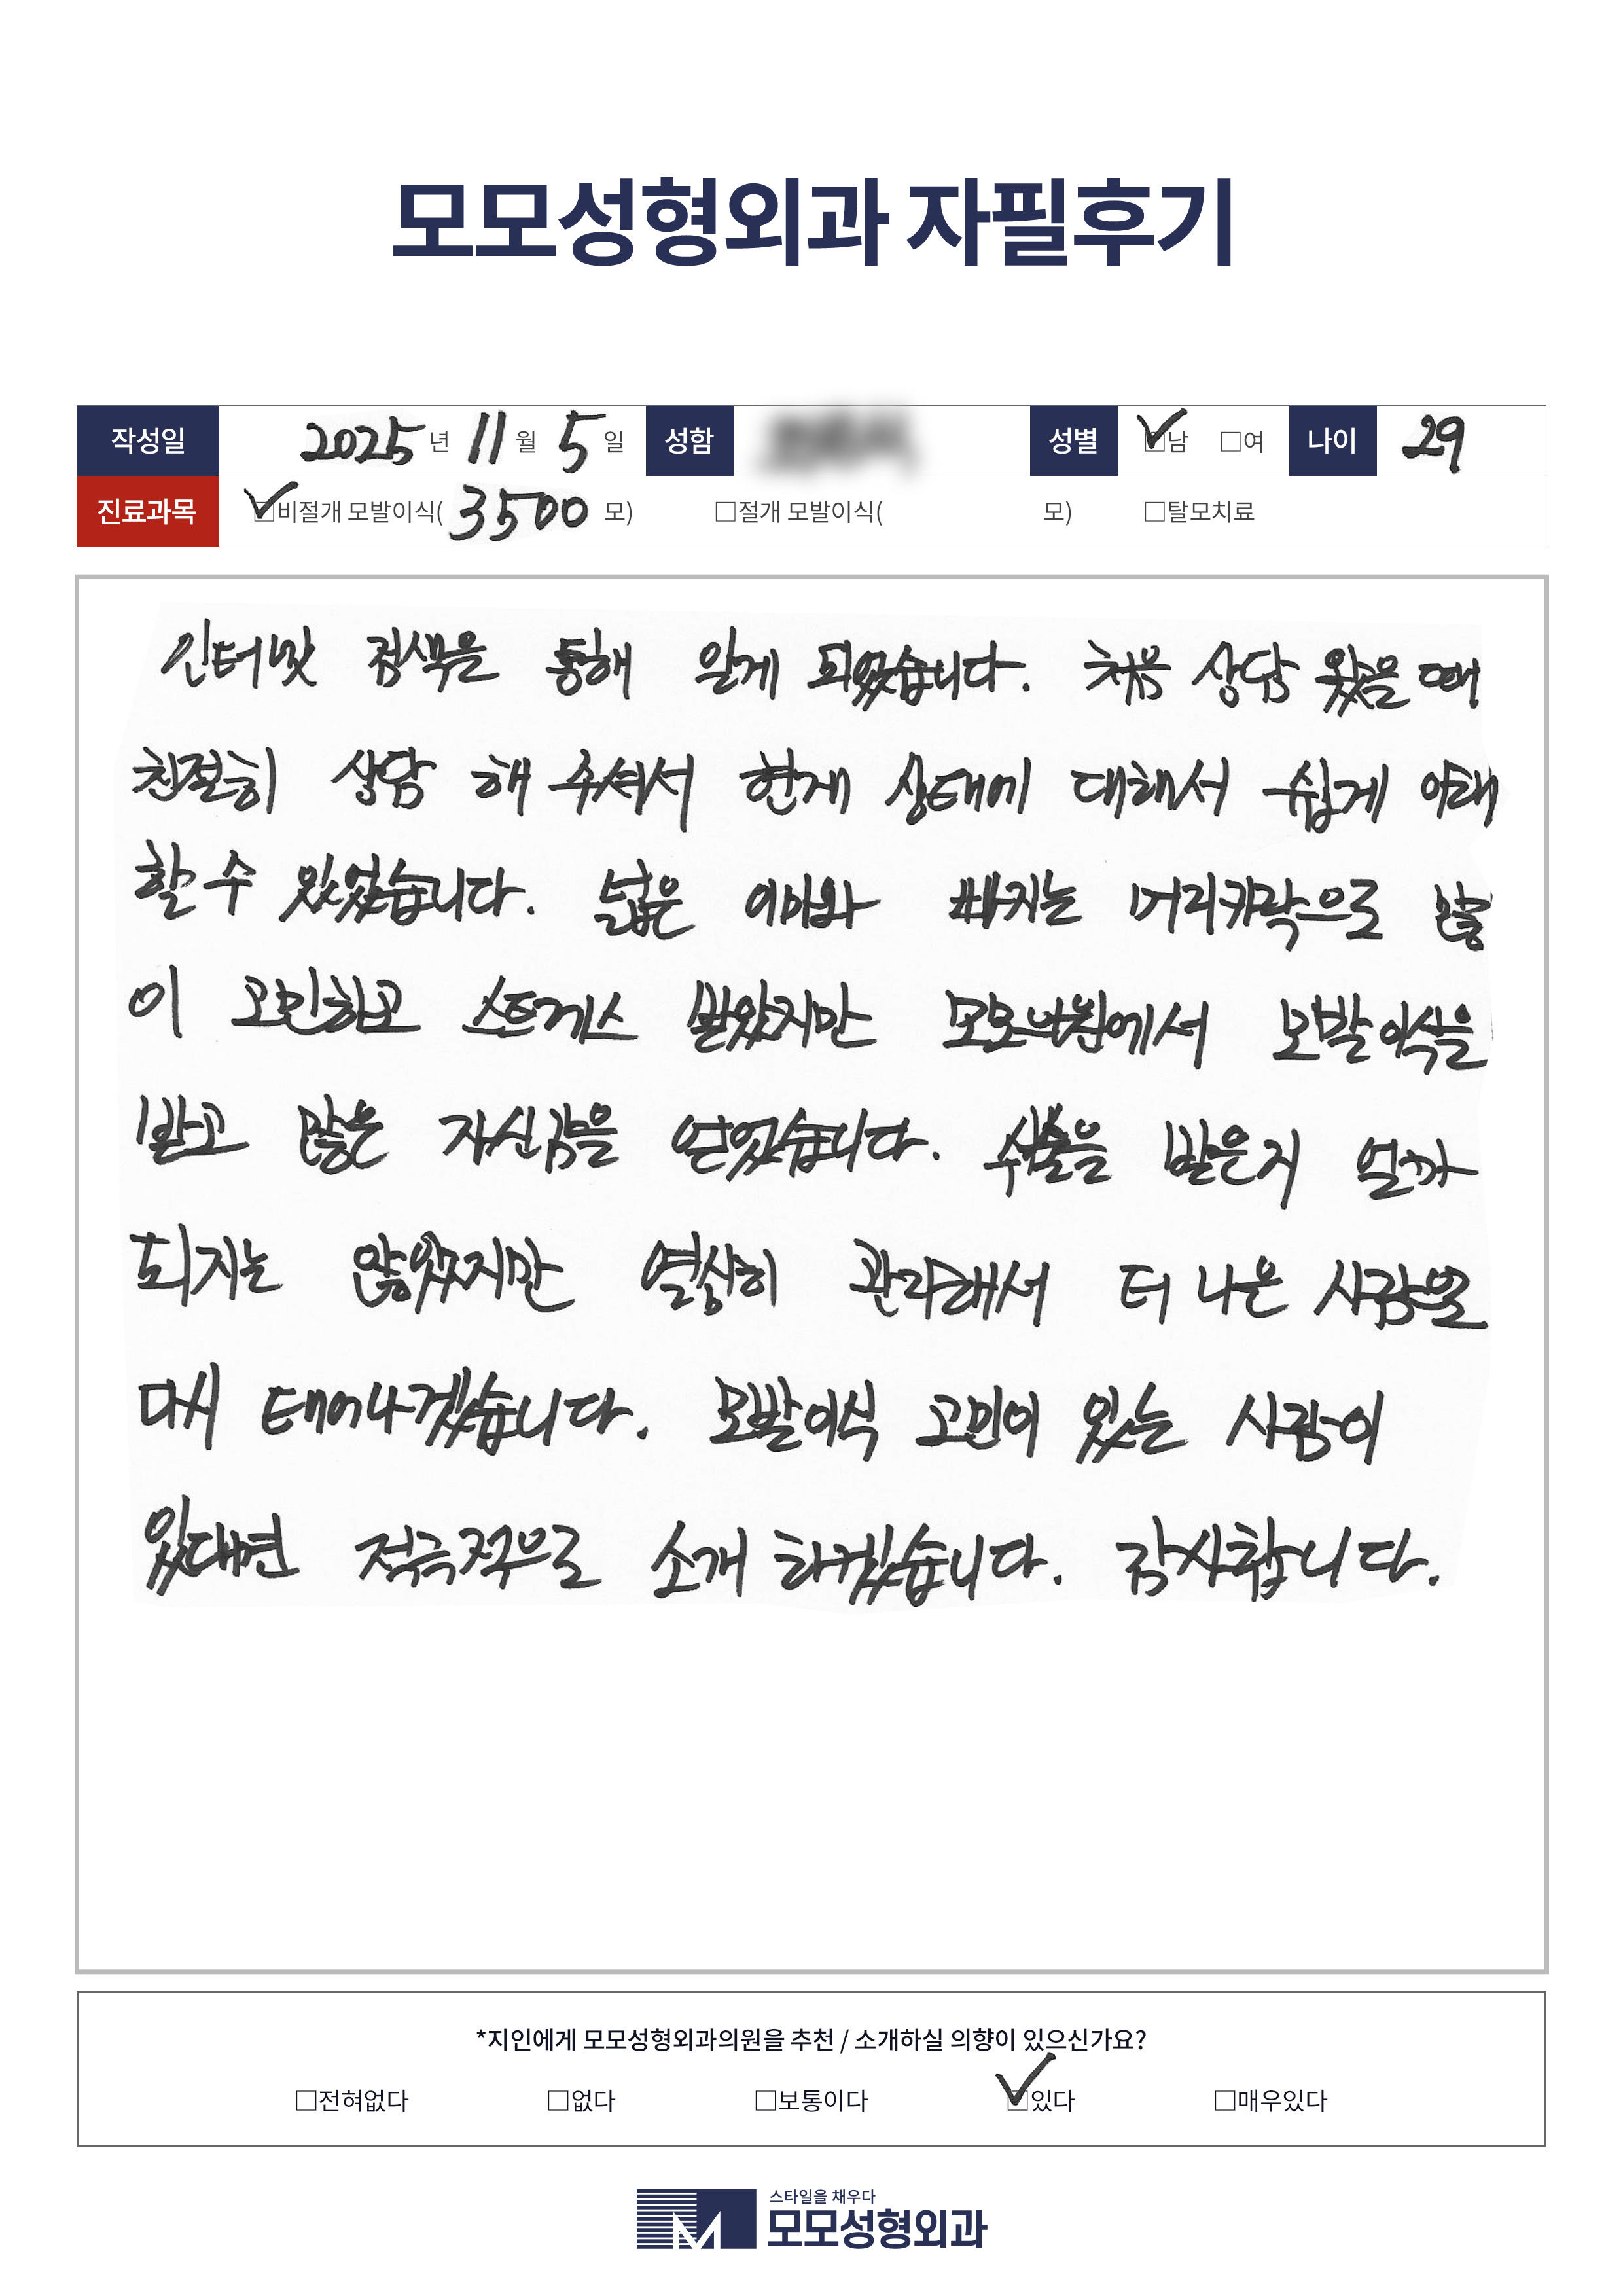 모모성형외과 자필후기
작성일 2025년 11월 5일 성함 성별 ☑남 □여 나이 29
진료과목 ☑비절개 모발이식( 3500 모) □절개 모발이식( 모) □탈모치료
인터넷 검색을 통해 알게 되었습니다. 처음 상담 왔을 때
친절히 상담 해 주셔서 현재 상태에 대해서 쉽게 이해
할 수 있었습니다. 넓은 이마와 빠지는 머리카락으로 많
이 고민하고 스트레스 받았지만 모모 에서 모발이식을
받고 많은 자신감을 얻었습니다. 수술을 받은지 얼마
되지는 않았지만 열심히 관리해서 더 나은 사람으로
다시 태어나겠습니다. 모발이식 고민이 있는 사람이
있다면 적극적으로 소개 하겠습니다. 감사합니다.
*지인에게 모모성형외과의원을 추천 / 소개하실 의향이 있으신가요?
□전혀없다 □없다 □보통이다 ☑있다 □매우있다
스타일을 채우다
모모성형외과